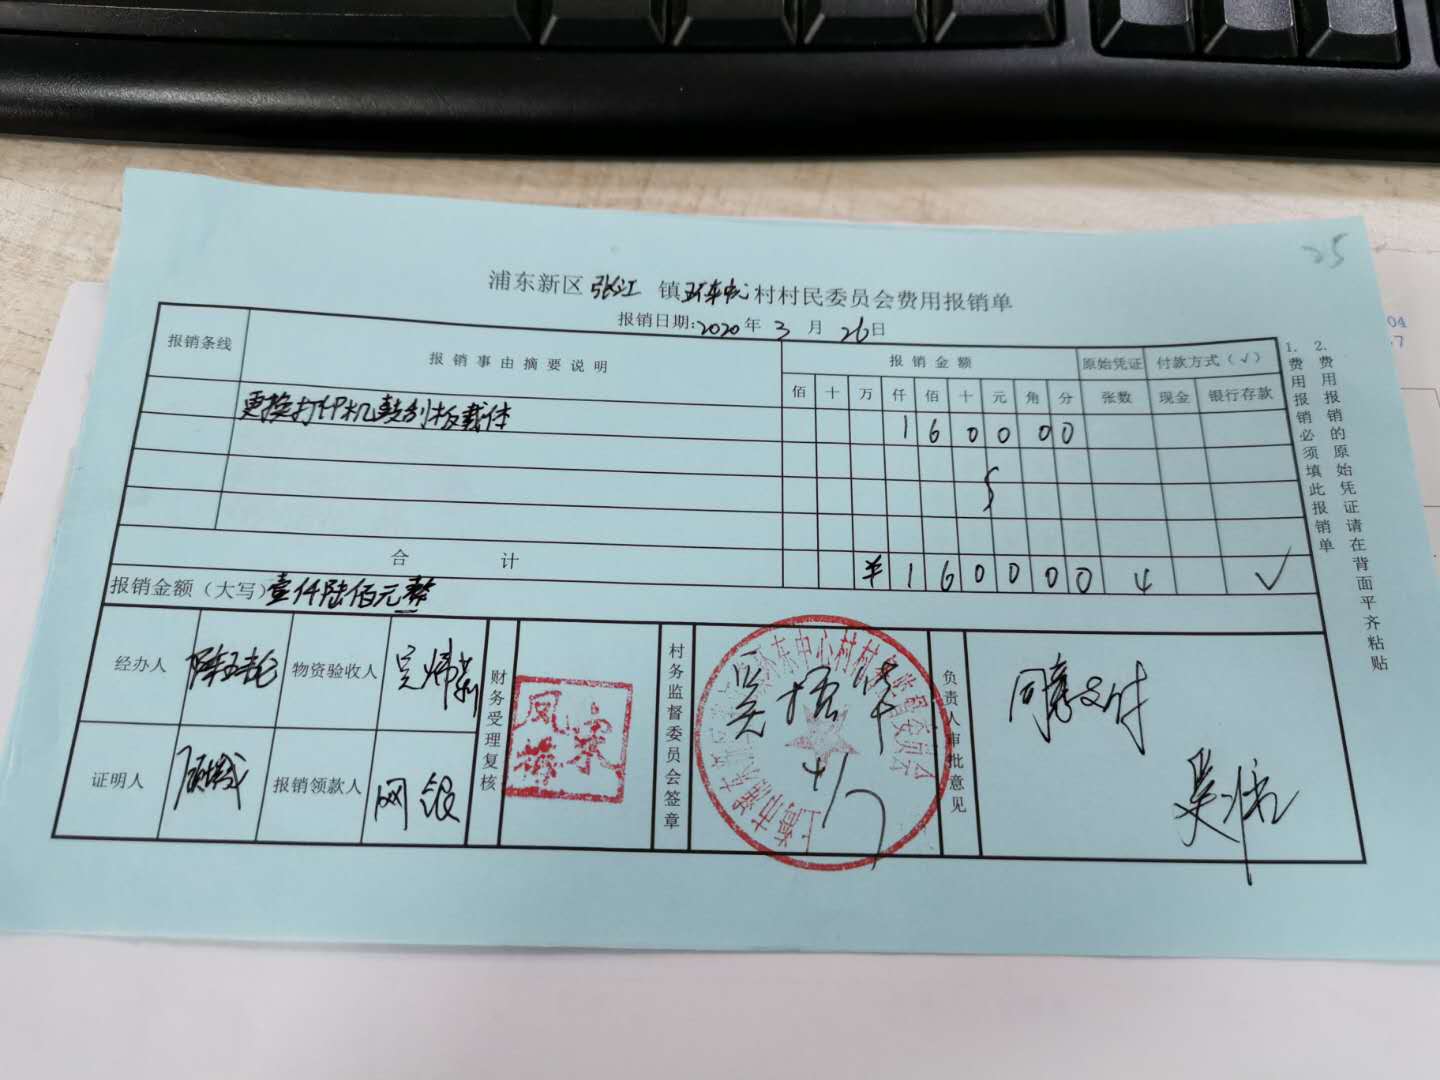 25
浦东新区张江镇环东中心村村民委员会费用报销单
报销日期:2020年3月26日
报销条线 报销事由摘要说明 报销金额 原始凭证 付款方式(√)
佰 十 万 仟 佰 十 元 角 分 张数 现金 银行存款
更换打印机鼓刮板载体 1 6 0 0 0 0
合计 ¥ 1 6 0 0 0 0 4 √
报销金额(大写)壹仟陆佰元整
经办人 物资验收人
证明人 报销领款人 网银
财务受理复核
村务监督委员会签章
4/7
负责人审批意见
同意支付
1.费用报销必须填此报销单
2.费用报销的原始凭证请在背面平齐粘贴
04
7